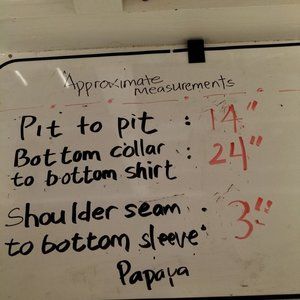 Approximate
measurements
Pit to pit : 14"
Bottom collar
to bottom shirt : 24"
Shoulder seam
to bottom sleeve : 3"
Papaya